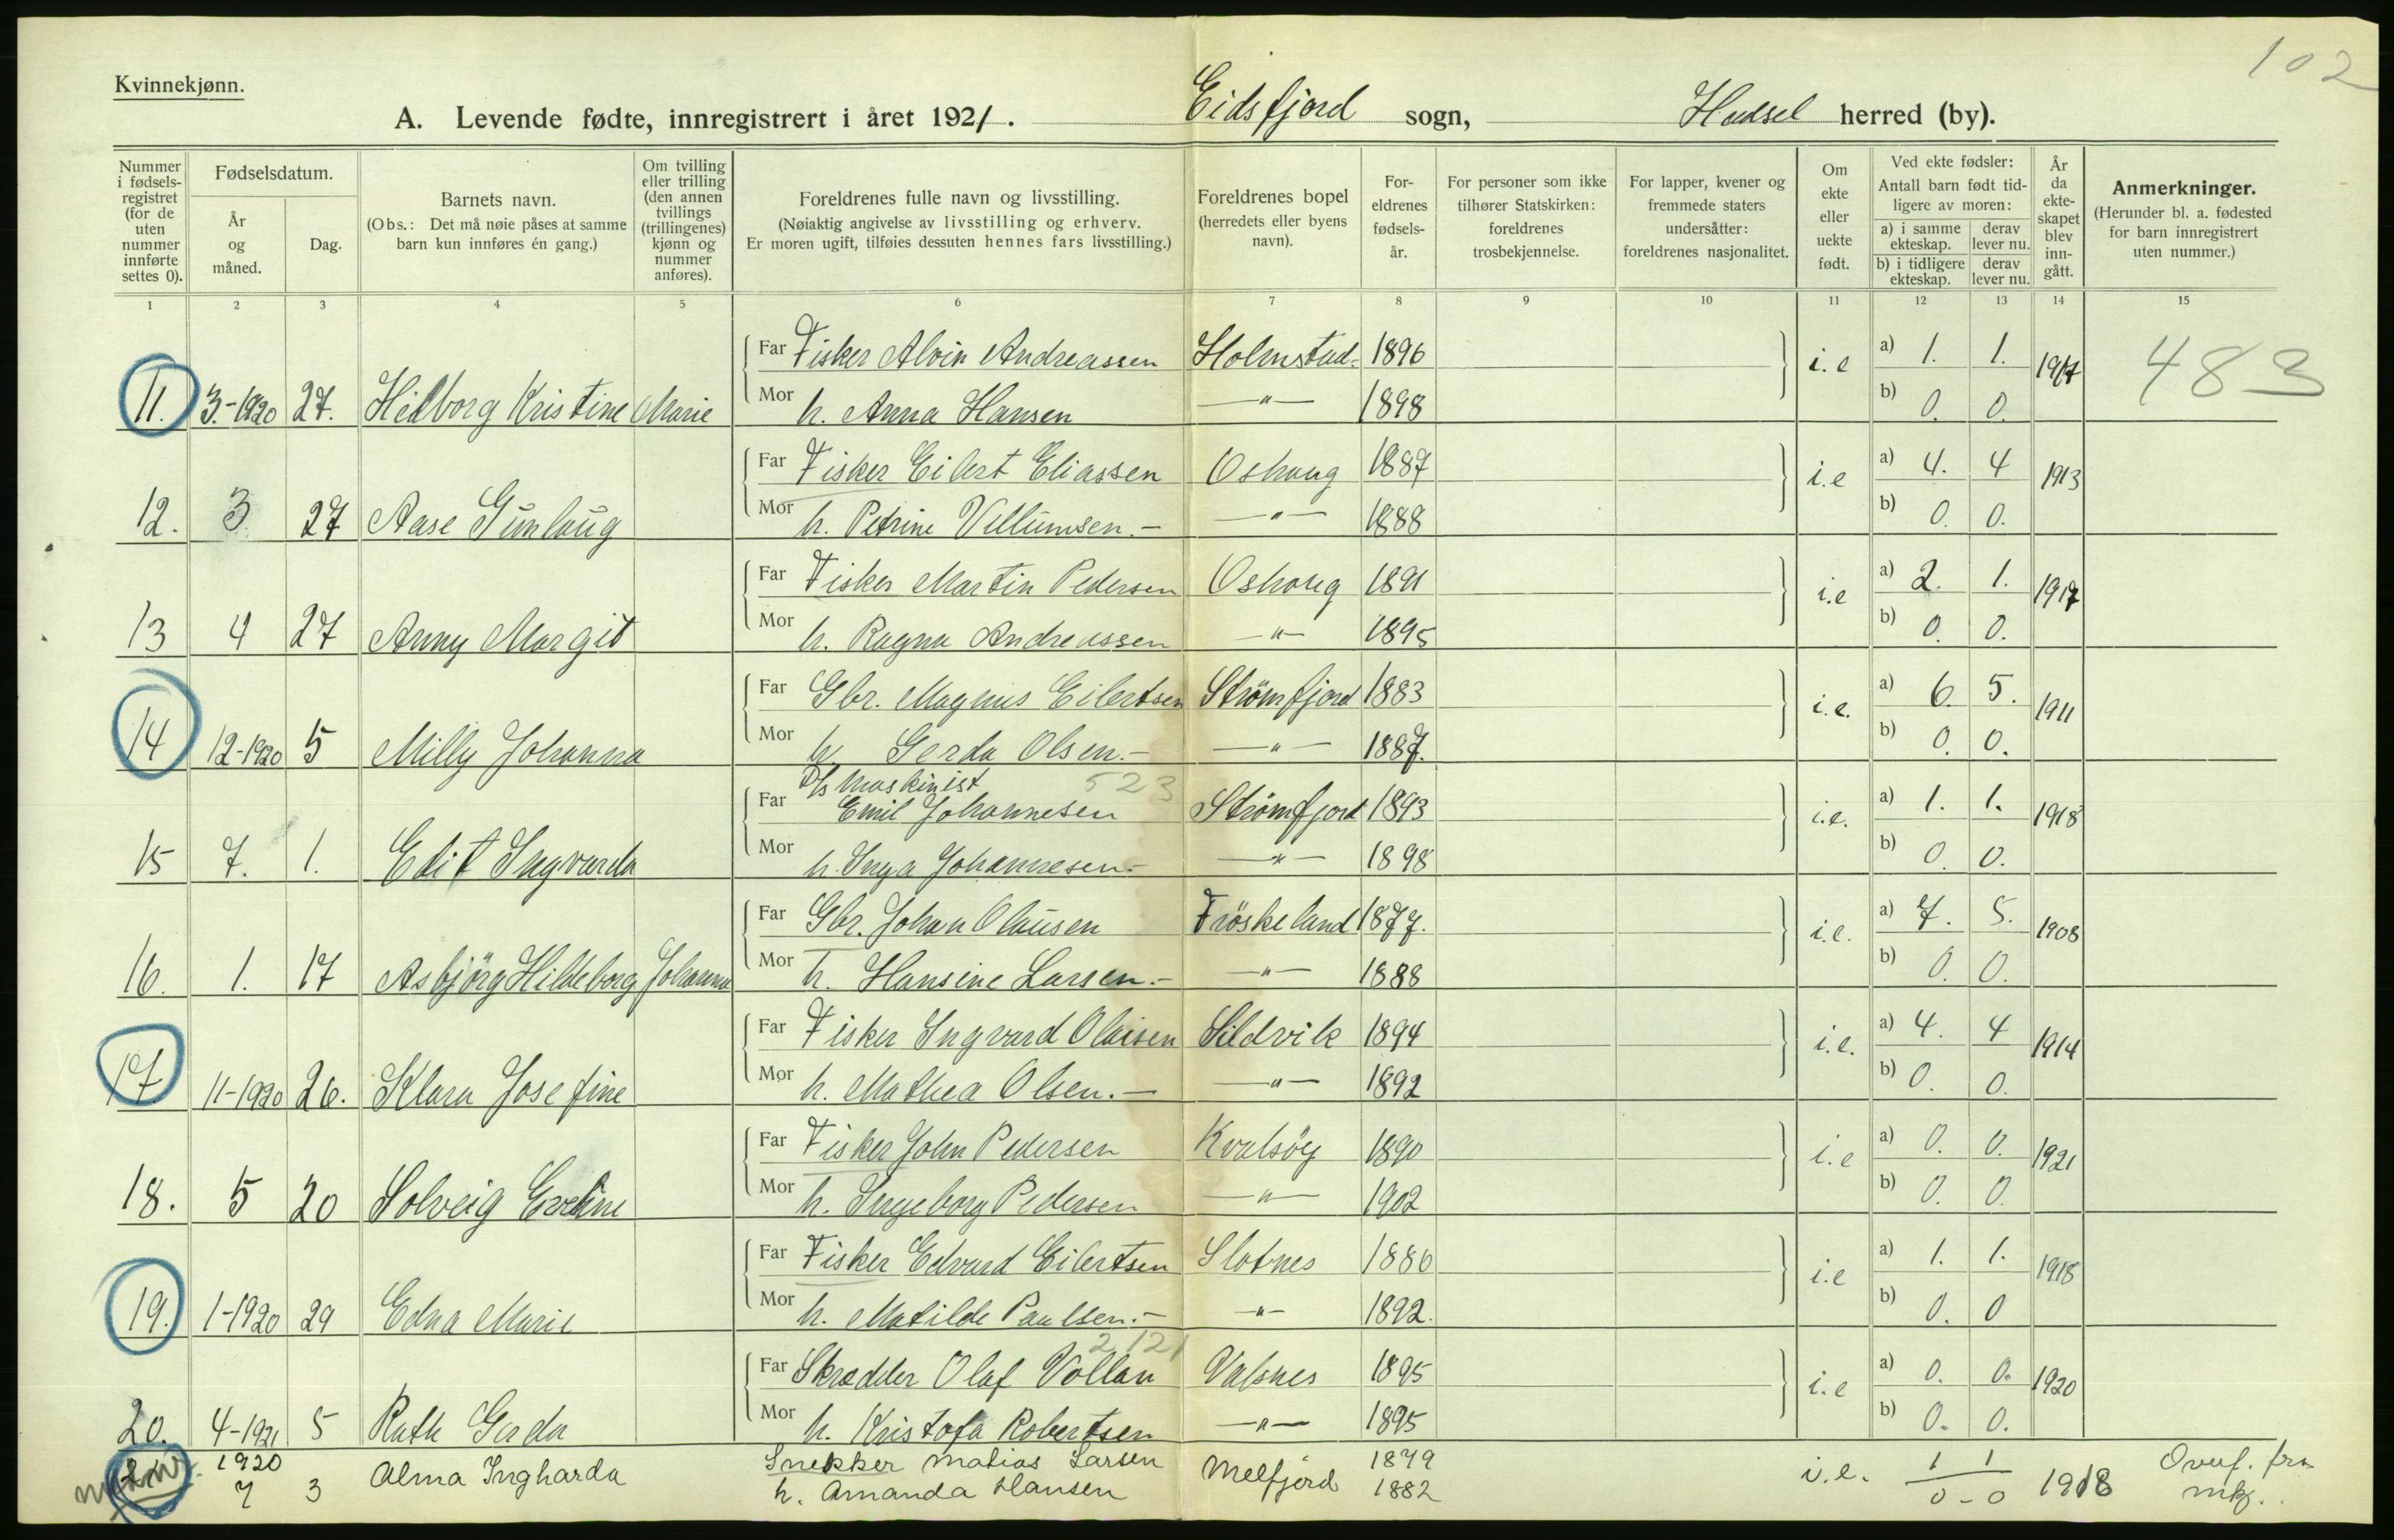 102
Kvinnekjønn.
A. Levende fødte, innregistrert i året 1921. Eidsfjord sogn, Hadsel herred (by).
Nummer i fødselsregistret (for de uten nummer innførte settes 0).
Fødselsdatum.
År og måned.
Dag.
Barnets navn.
(Obs.: Det må nøie påses at samme barn kun innføres én gang.)
Om tvilling eller trilling (den annen tvillings (trillingenes) kjønn og nummer anføres).
Foreldrenes fulle navn og livsstilling.
(Nøiaktig angivelse av livsstilling og erhverv.
Er moren ugift, tilføies dessuten hennes fars livsstilling.)
Foreldrenes bopel (herredets eller byens navn).
Foreldrenes fødselsår.
For personer som ikke tilhører Statskirken: foreldrenes trosbekjennelse.
For lapper, kvener og fremmede staters undersåtter: foreldrenes nasjonalitet.
Om ekte eller uekte født.
Ved ekte fødsler: Antall barn født tidligere av moren:
a) i samme ekteskap. derav lever nu.
b) i tidligere ekteskap. derav lever nu.
År da ekteskapet blev inngått.
Anmerkninger.
(Herunder bl. a. fødested for barn innregistrert uten nummer.)
1 2 3 4 5 6 7 8 9 10 11 12 13 14 15
Far Fisker Alvin Andreassen Holmstad 1896 i.e a) 1. 1. 1917 483
11. 3.-1920 27. Hilborg Kristine Marie Mor h. Anna Hansen —"— 1898 b) 0. 0.
Far Fisker Eilert Eliassen Oshaug 1887 i.e a) 4. 4 1913
12. 3. 27 Aase Gunlaug Mor h. Petrine Villumsen.— —"— 1888 b) 0. 0.
Far Fisker Martin Pedersen Oshaug 1891 i.e a) 2. 1. 1917
13 4 27 Anny Margit Mor h. Ragna Andreassen —"— 1895 b) 0. 0.
Far Gbr. Magnus Eilertsen Strömfjord 1883 i.e. a) 6. 5. 1911
14 12-1920 5 Milly Johanna Mor h. Gerda Olsen.— —"— 1887. b) 0. 0.
D/s Maskinist 523
Far Emil Johannesen Strömfjord 1893 i.e. a) 1. 1. 1918
15 7. 1. Edit Ingvarda Mor h. Inga Johannesen.— —"— 1898 b) 0. 0.
Far Gbr. Johan Olausen Fröskeland 1877. i.e. a) 7. 5. 1908
16. 1. 17 Asbjörg Hildeborg Johanna Mor h. Hansine Larsen.— —"— 1888 b) 0. 0.
Far Fisker Ingvard Olaisen Sildvik 1894 i.e. a) 4. 4 1914
17. 11-1920 26. Klara Josefine Mor h. Mathea Olsen.— —"— 1892 b) 0. 0.
Far Fisker John Pedersen Kvalsöy 1890 i.e a) 0. 0. 1921
18. 5 20 Solveig Eveline Mor h. Ingeborg Pedersen —"— 1902 b) 0. 0.
Far Fisker Edvard Eilertsen Slotnes 1886 i.e a) 1. 1. 1918
19. 1-1920 29 Edna Marie Mor h. Matilde Paulsen.— —"— 1892. b) 0. 0
2121
Far Skrædder Olaf Vollan Valsnes 1895 i.e a) 0. 0. 1920
20. 4-1921 5 Ruth Gerda Mor h. Kristofa Robertsen —"— 1895 b) 0. 0.
1920 Snekker Matias Larsen 1879 1 1 Overf. fra
21 7 3 Alma Ingharda h. Amanda Hansen Melfjord 1882 i.e. 0-0 1918 mk.